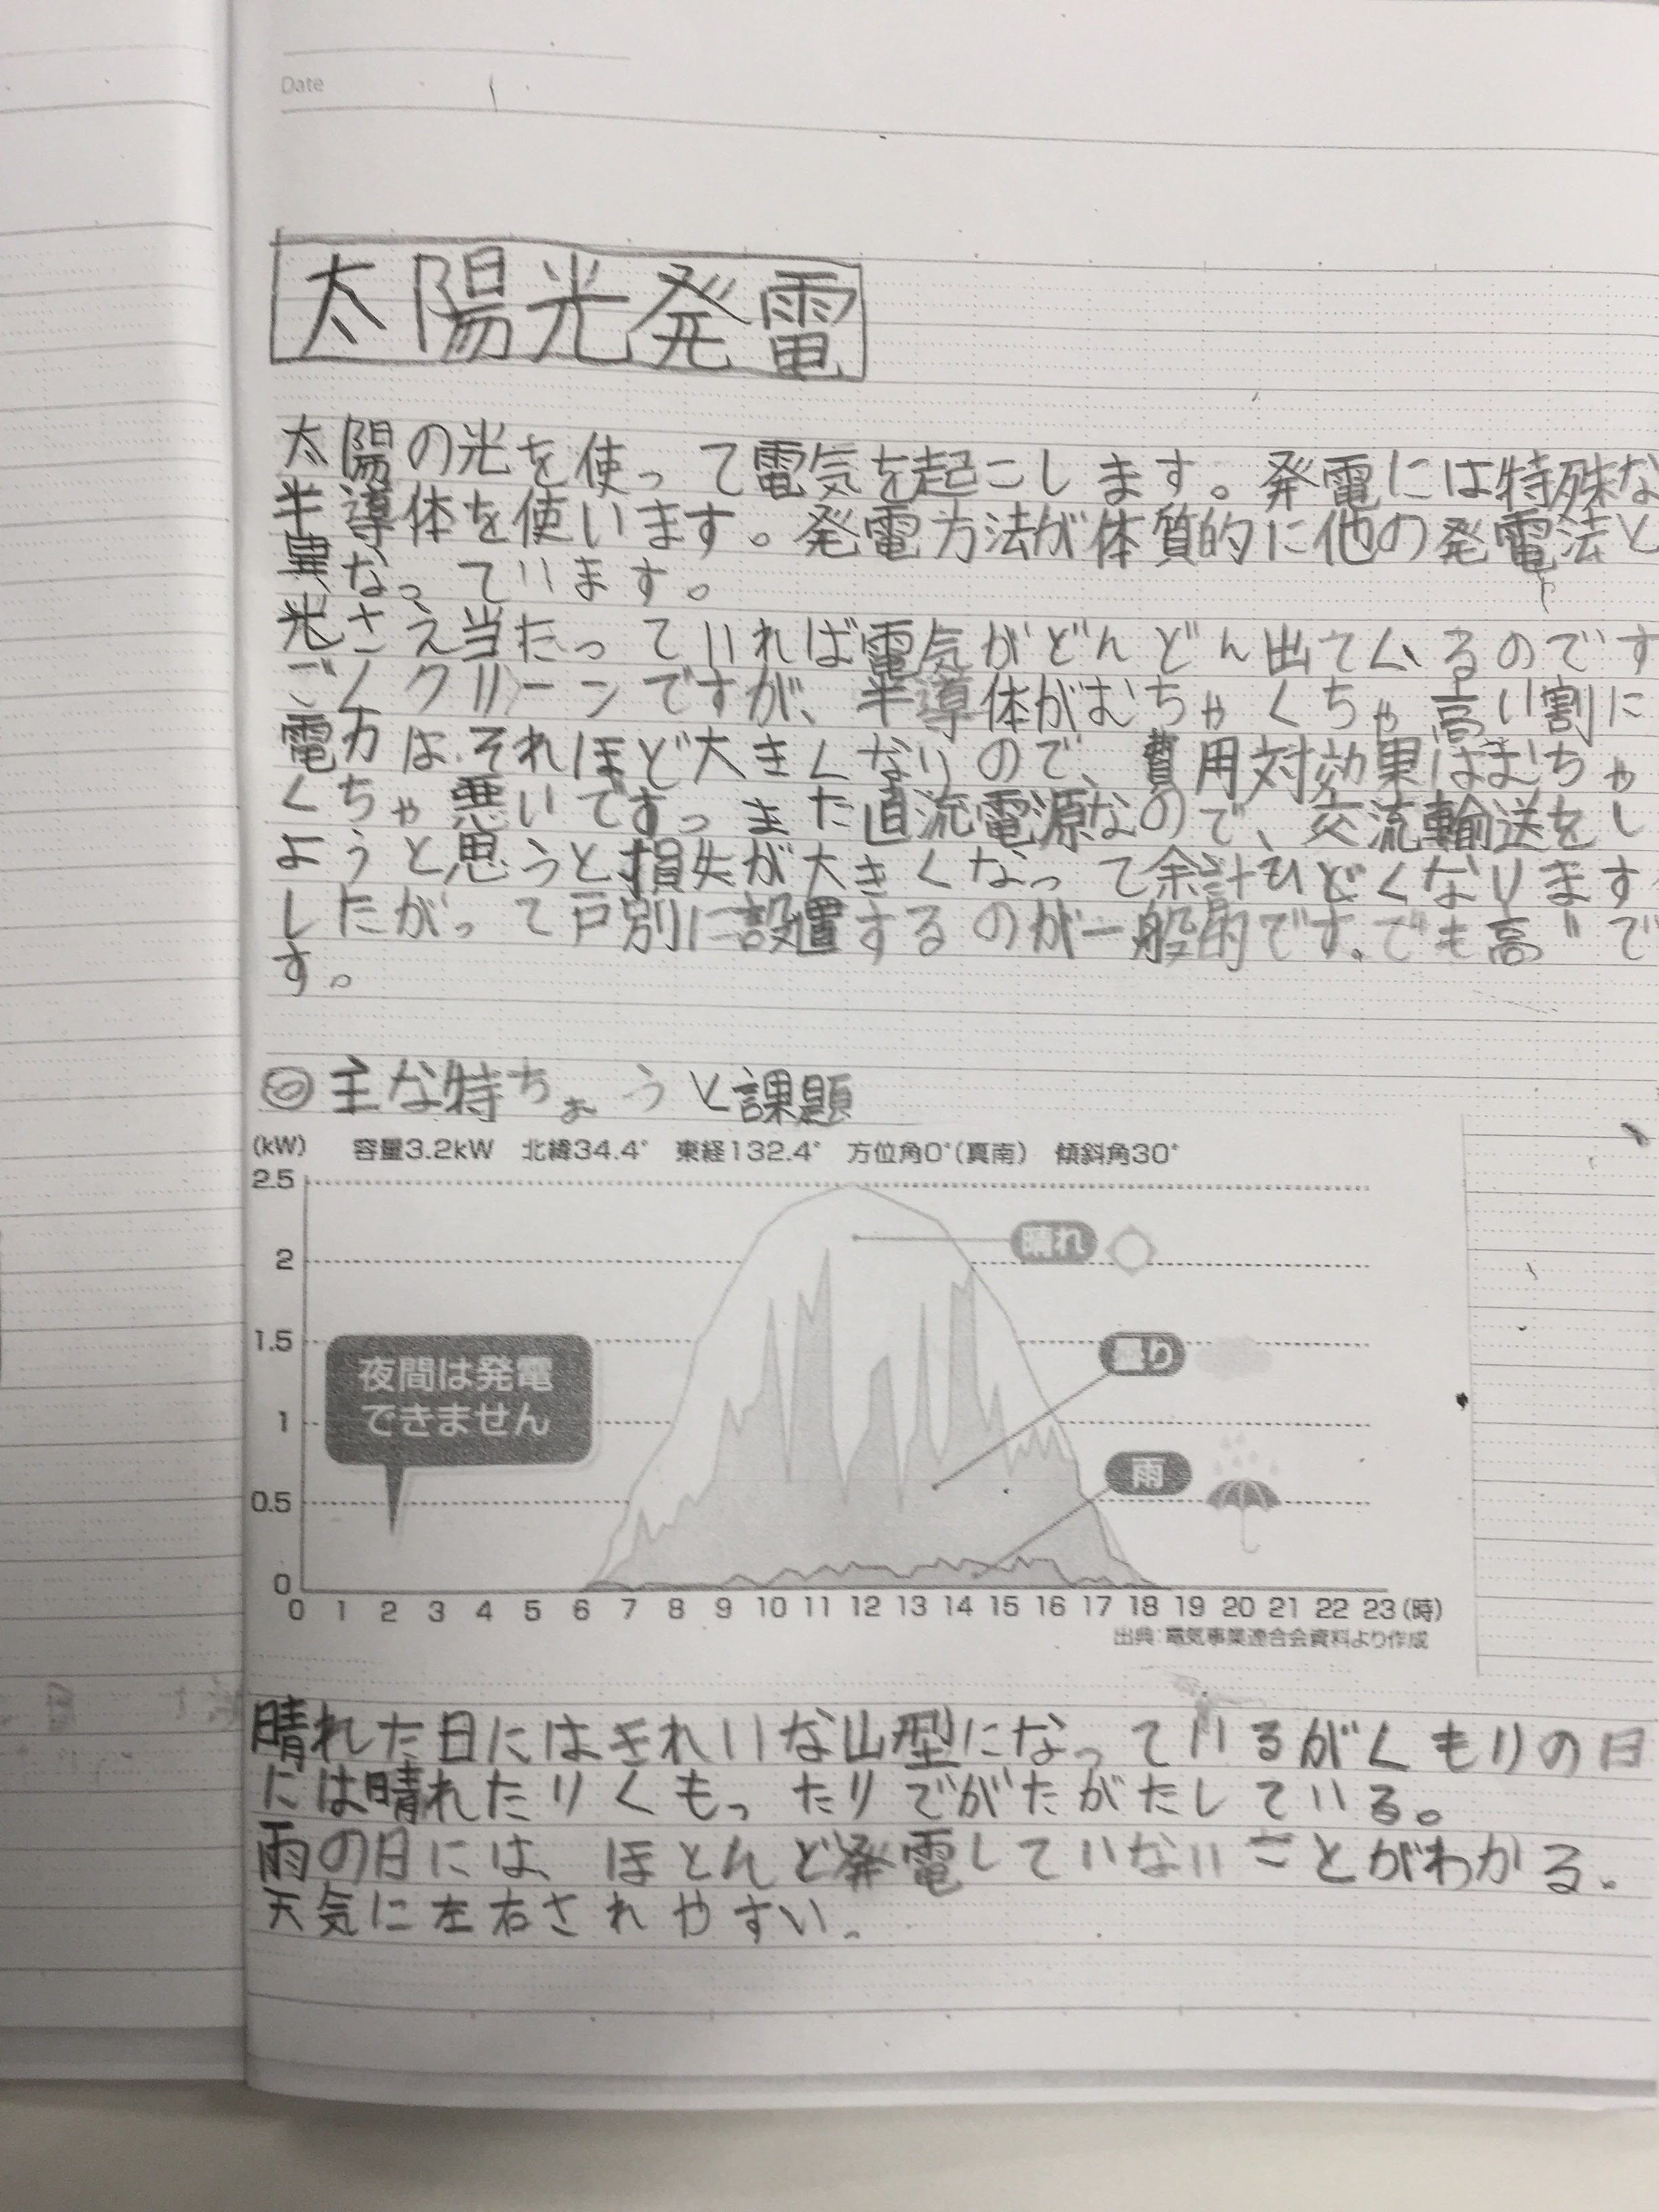 Date
太陽光発電
太陽の光を使って電気を起こします。発電には特殊な
半導体を使います。発電方法が体質的に他の発電法と
異なっています。
光さえ当たっていれば電気がどんどん出てくるのです
ごくクリーンですが、半導体がむちゃくちゃ高い割に
電力はそれほど大きくなりので、費用対効果はむちゃ
くちゃ悪いです。また直流電源なので、交流輸送をし
ようと思うと損失が大きくなって余計ひどくなります
したがって戸別に設置するのが一般的です。でも高いで
す。
◎主な特ちょうと課題
(kW) 容量3.2kW 北緯34.4° 東経132.4° 方位角0°(真南) 傾斜角30°
2.5
晴れ
2
1.5
曇り
夜間は発電
できません
1
雨
0.5
0
0 1 2 3 4 5 6 7 8 9 10 11 12 13 14 15 16 17 18 19 20 21 22 23(時)
出典:電気事業連合会資料より作成
晴れた日にはきれいな山型になっているがくもりの日
には晴れたりくもったりでがたがたしている。
雨の日には、ほとんど発電していないことがわかる。
天気に左右されやすい。